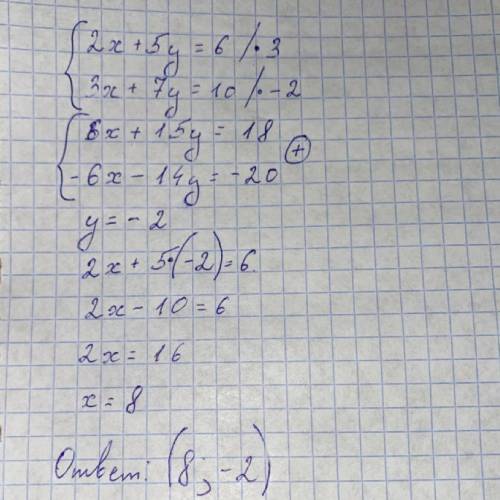 2x + 5y = 6 /· 3
3x + 7y = 10 /· -2
6x + 15y = 18
-6x - 14y = -20 +
y = - 2
2x + 5·(-2) = 6
2x - 10 = 6
2x = 16
x = 8
Ответ: (8; -2)